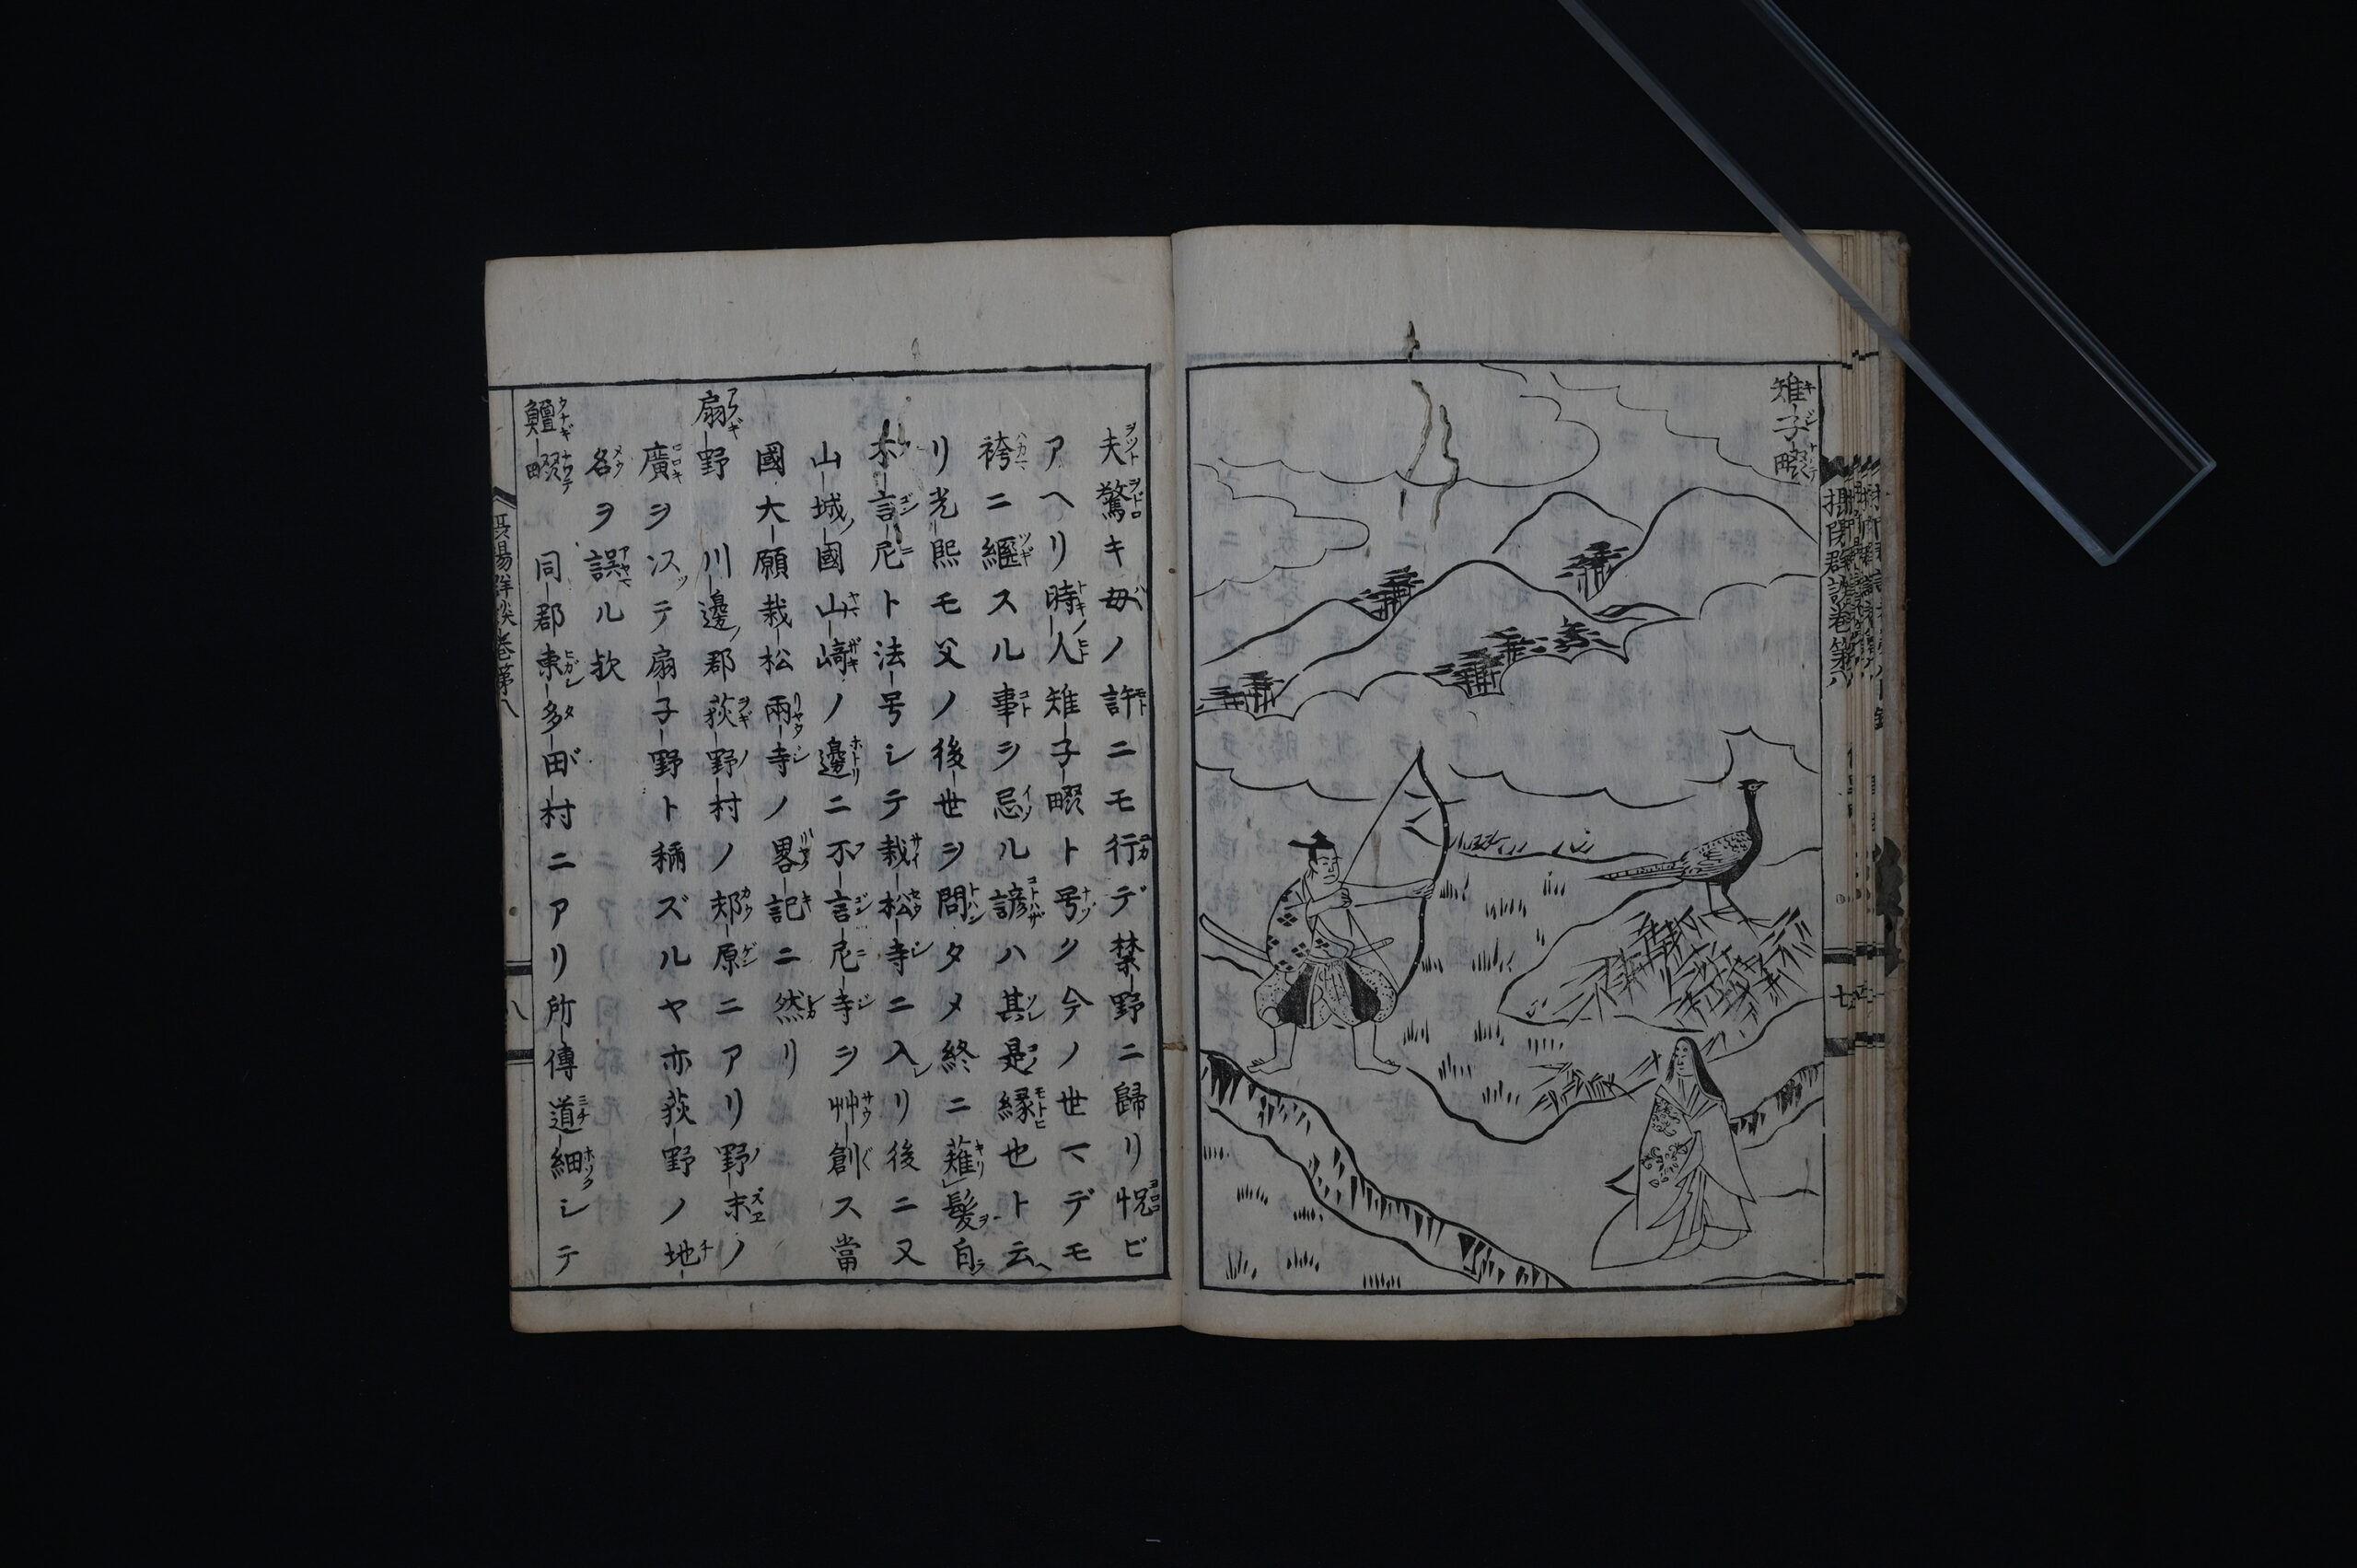 雉子畷
夫驚キ毋ノ許ニモ行デ禁野ニ歸リ悦ビ
アヘリ時ノ人雉子畷ト号ク今ノ世マデモ
袴ニ継スル事ヲ忌ル諺ハ其是縁也ト云
リ光熈モ父ノ後世ヲ問タメ終ニ薙髪自
不言尼ト法号シテ栽松寺ニ入リ後ニ又
山城國山﨑ノ邊ニ不言尼寺ヲ艸創ス當
國大願栽松兩寺ノ畧記ニ然リ
扇野 川邊郡荻野村ノ郊原ニアリ野末ノ
廣ヲ以テ扇子野ト稱ズルヤ亦荻野ノ地
名ヲ誤ル欤
鱣畷 同郡東多田村ニアリ所傳道細シテ
八
七